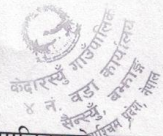 केदारस्युँ गाउँपालिका
४ नं. वडा कार्यालय
सैन्स्युँ, बझाङ
सुदूरपश्चिम प्रदेश, नेपाल